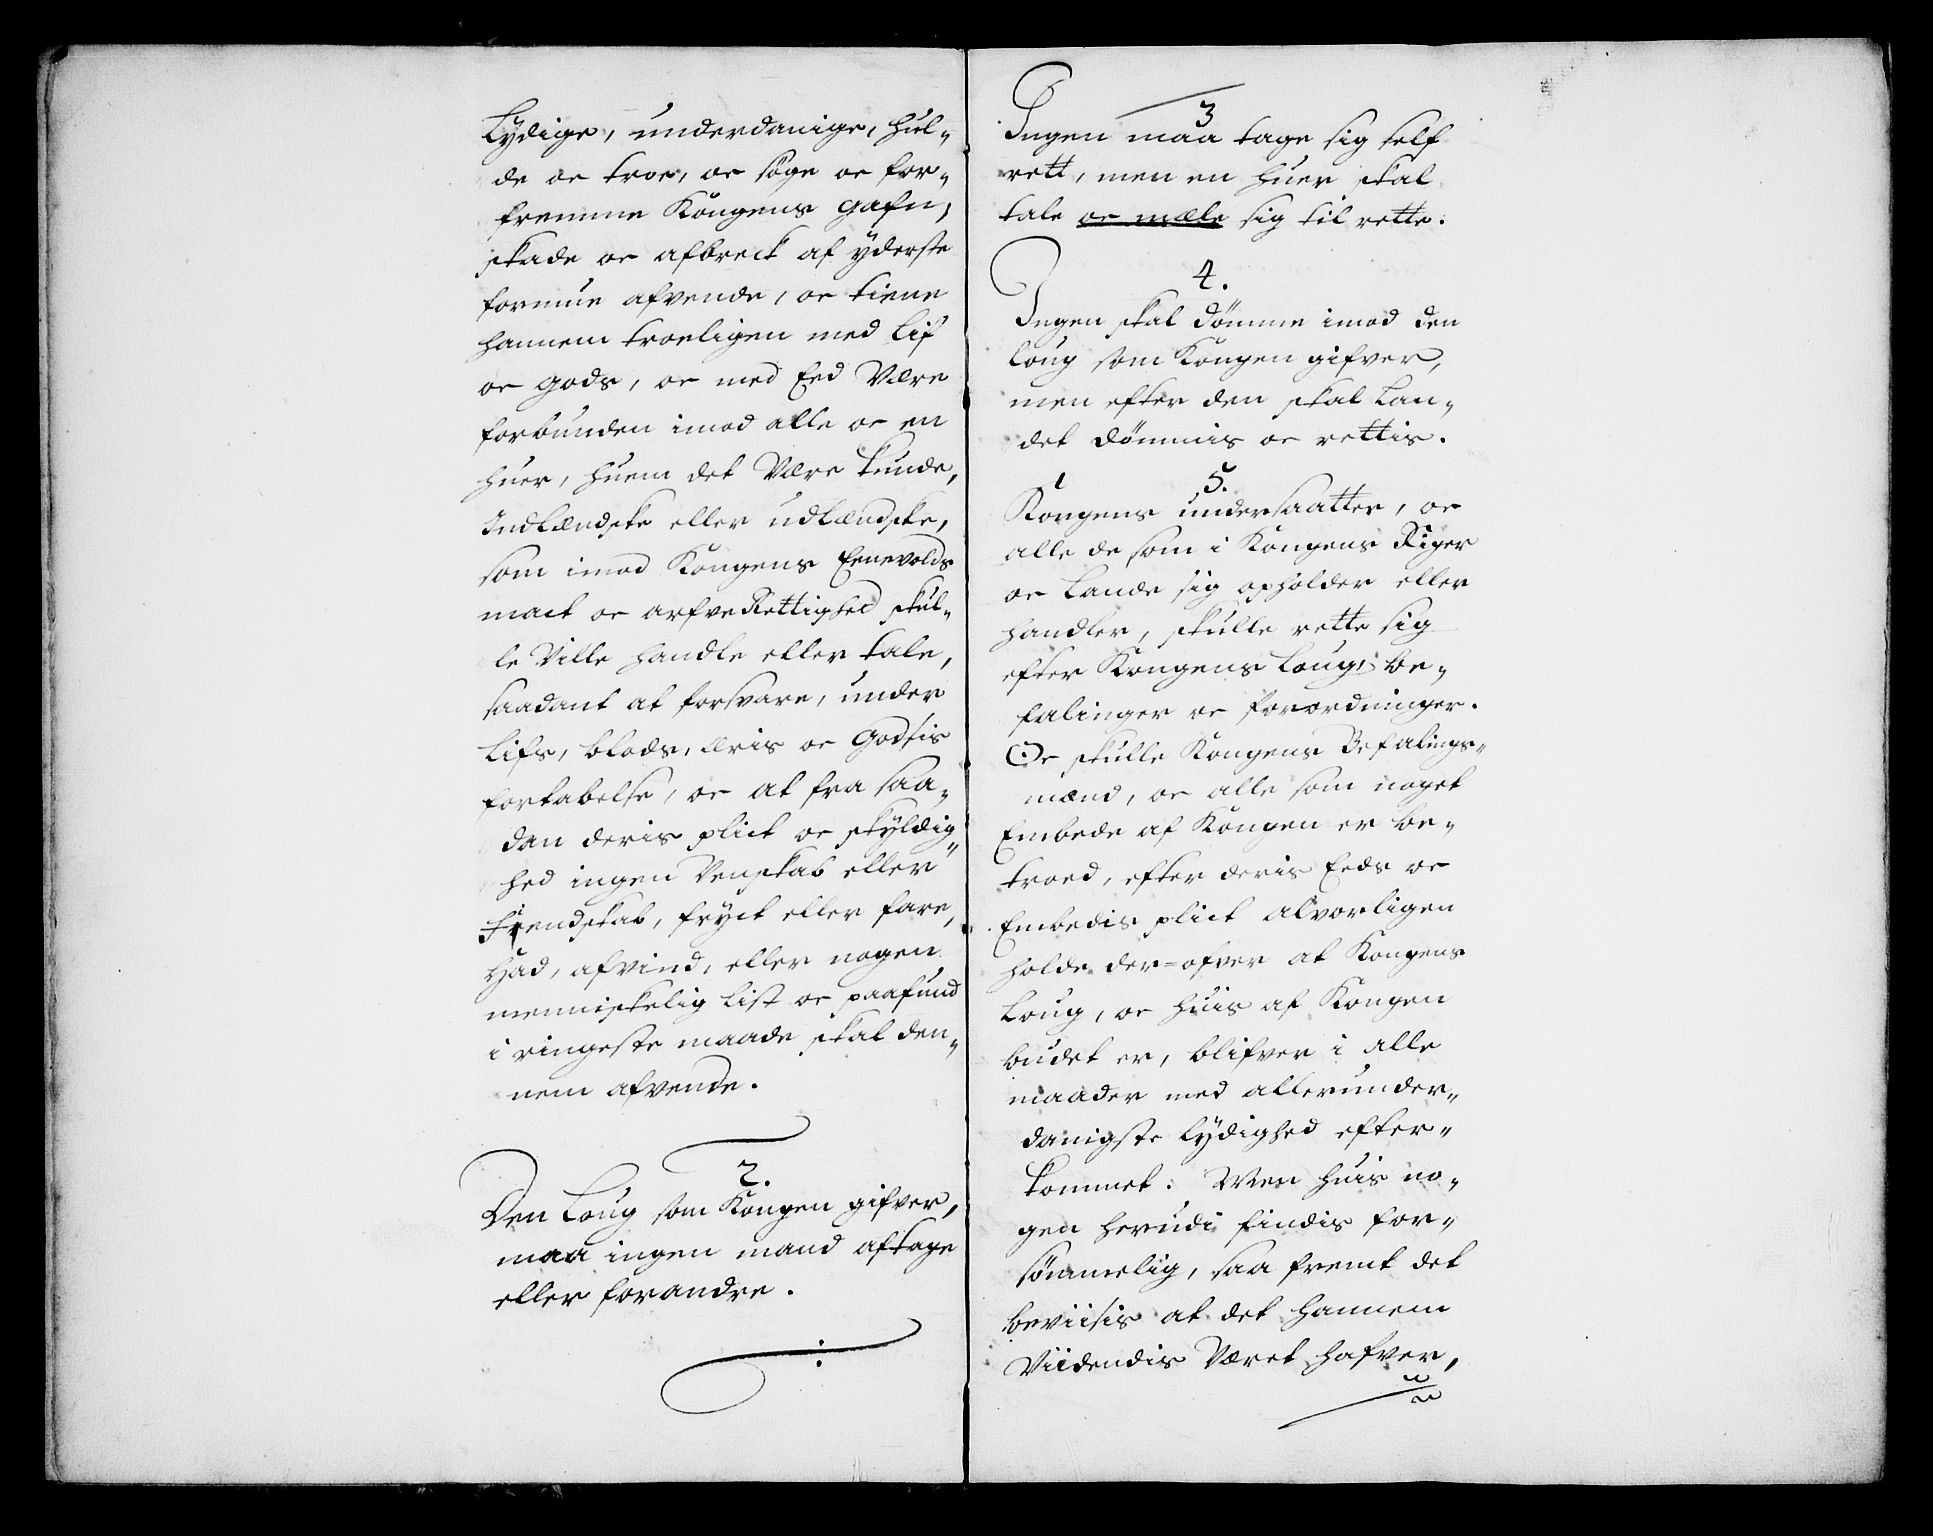 Lydige, underdanige, hul„
de oc troe, oc søge oc for„
fremme Kongens gafn,
skade oc afbreck af yderste
formue afvende, oc tiene
hannem troeligen med lif
oc gods, oc med Eed være
forbunden imod alle oc en
huer, huem det være kunde,
Indlændske eller udlændske,
som imod Kongens Eenevolds
mact oc arfveRettighed skul„
le ville handle eller tale,
saadant at forsvare, under
Lifs, blods, æris oc Godsis
fortabelse, oc at fra saa„
dan deris plict oc skyldig„
hed ingen Venskab eller
Fiendskab, fryct eller fare,
Had, afvind, eller nogen
menniskelig List oc paafund
i ringeste maade skal den„
nem afvende.
2.
Den Loug som Kongen gifver,
maa ingen mand aftage
eller forandre.
3
Ingen maa tage sig self
rett, men en huer skal
tale oc mæle sig til rette.
4.
Ingen skal dömme imod den
loug som Kongen gifver,
men efter den skal Lan„
det dömmis oc rettis.
5.
Kongens undersaatter, oc
alle de som i Kongens Riger
oc Lande sig opholder eller
handler, skulle rette sig
efter Kongens Loug, be„
falinger oc forordninger.
Oc skulle Kongens Befalings„
mænd, oc alle som noget
Embede af Kongen er be„
troed, efter deris Eeds oc
Embedis plict alvorligen
holde der=ofver at Kongens
Loug, oc huis af Kongen
budet er, blifver i alle
maader med allerunder„
danigste lydighed efter„
kommet. Men huis no„
gen herudi findis for„
sömmelig, saa fremt det
beviisis at det hannem
Viidendis været hafver,